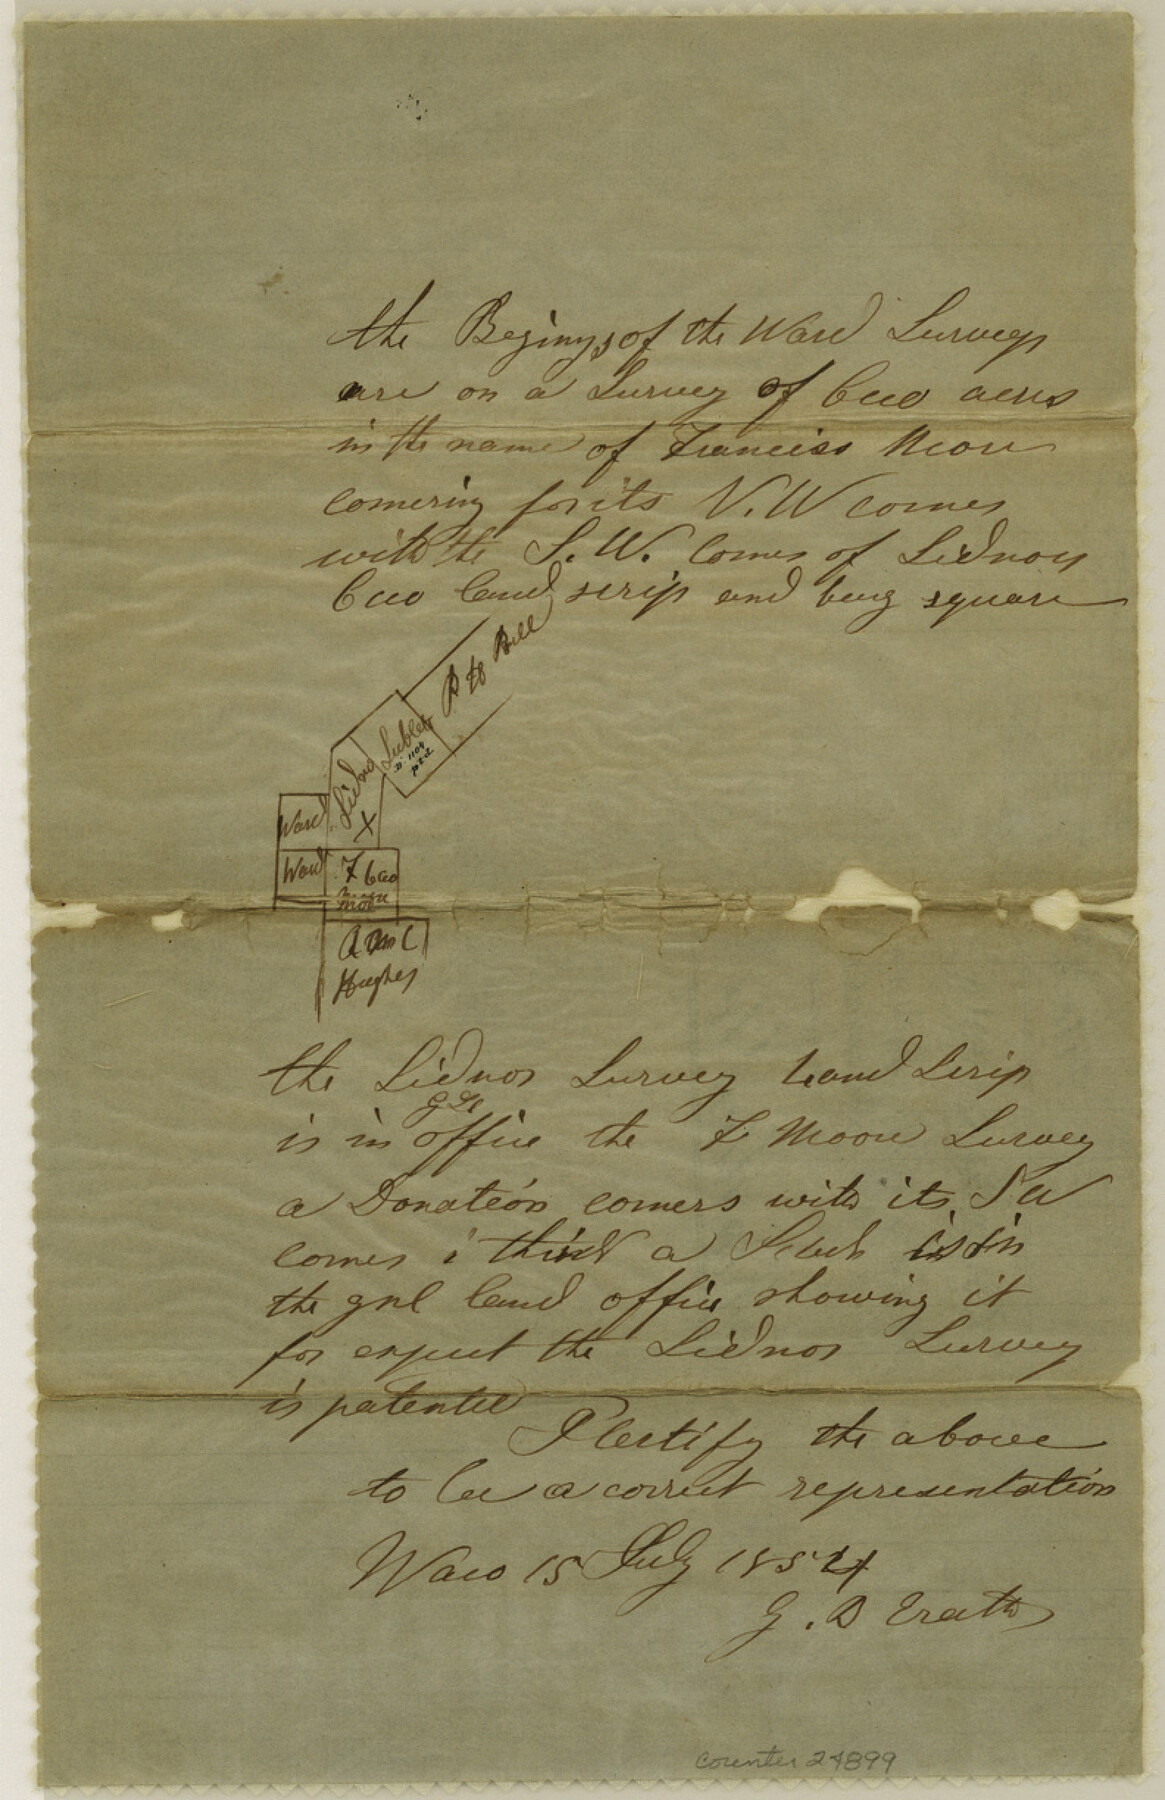 the Beginngs of the Ward Surveys
are on a Survey of 600 acres
in the name of Francisco Moore
cornering for its N. W corner
with the S. W. corner of Lidnors
600 land scrip and being square
R H Bell
Sublett
1104
ptd
Lidnor
X
Ward
Ward
F 600
Moore
A Mc C
Hughes
the Lidnor Survey Land Scrip
is in office the F Moore Survey
a Donation corners with its S W
corner i think a Sketch is in
the gnl land office showing it
for expect the Lidnor Survey
is patented
I Certify the above
to be a correct representation
Waco 15 July 1854
G. B Erath
counter 24899